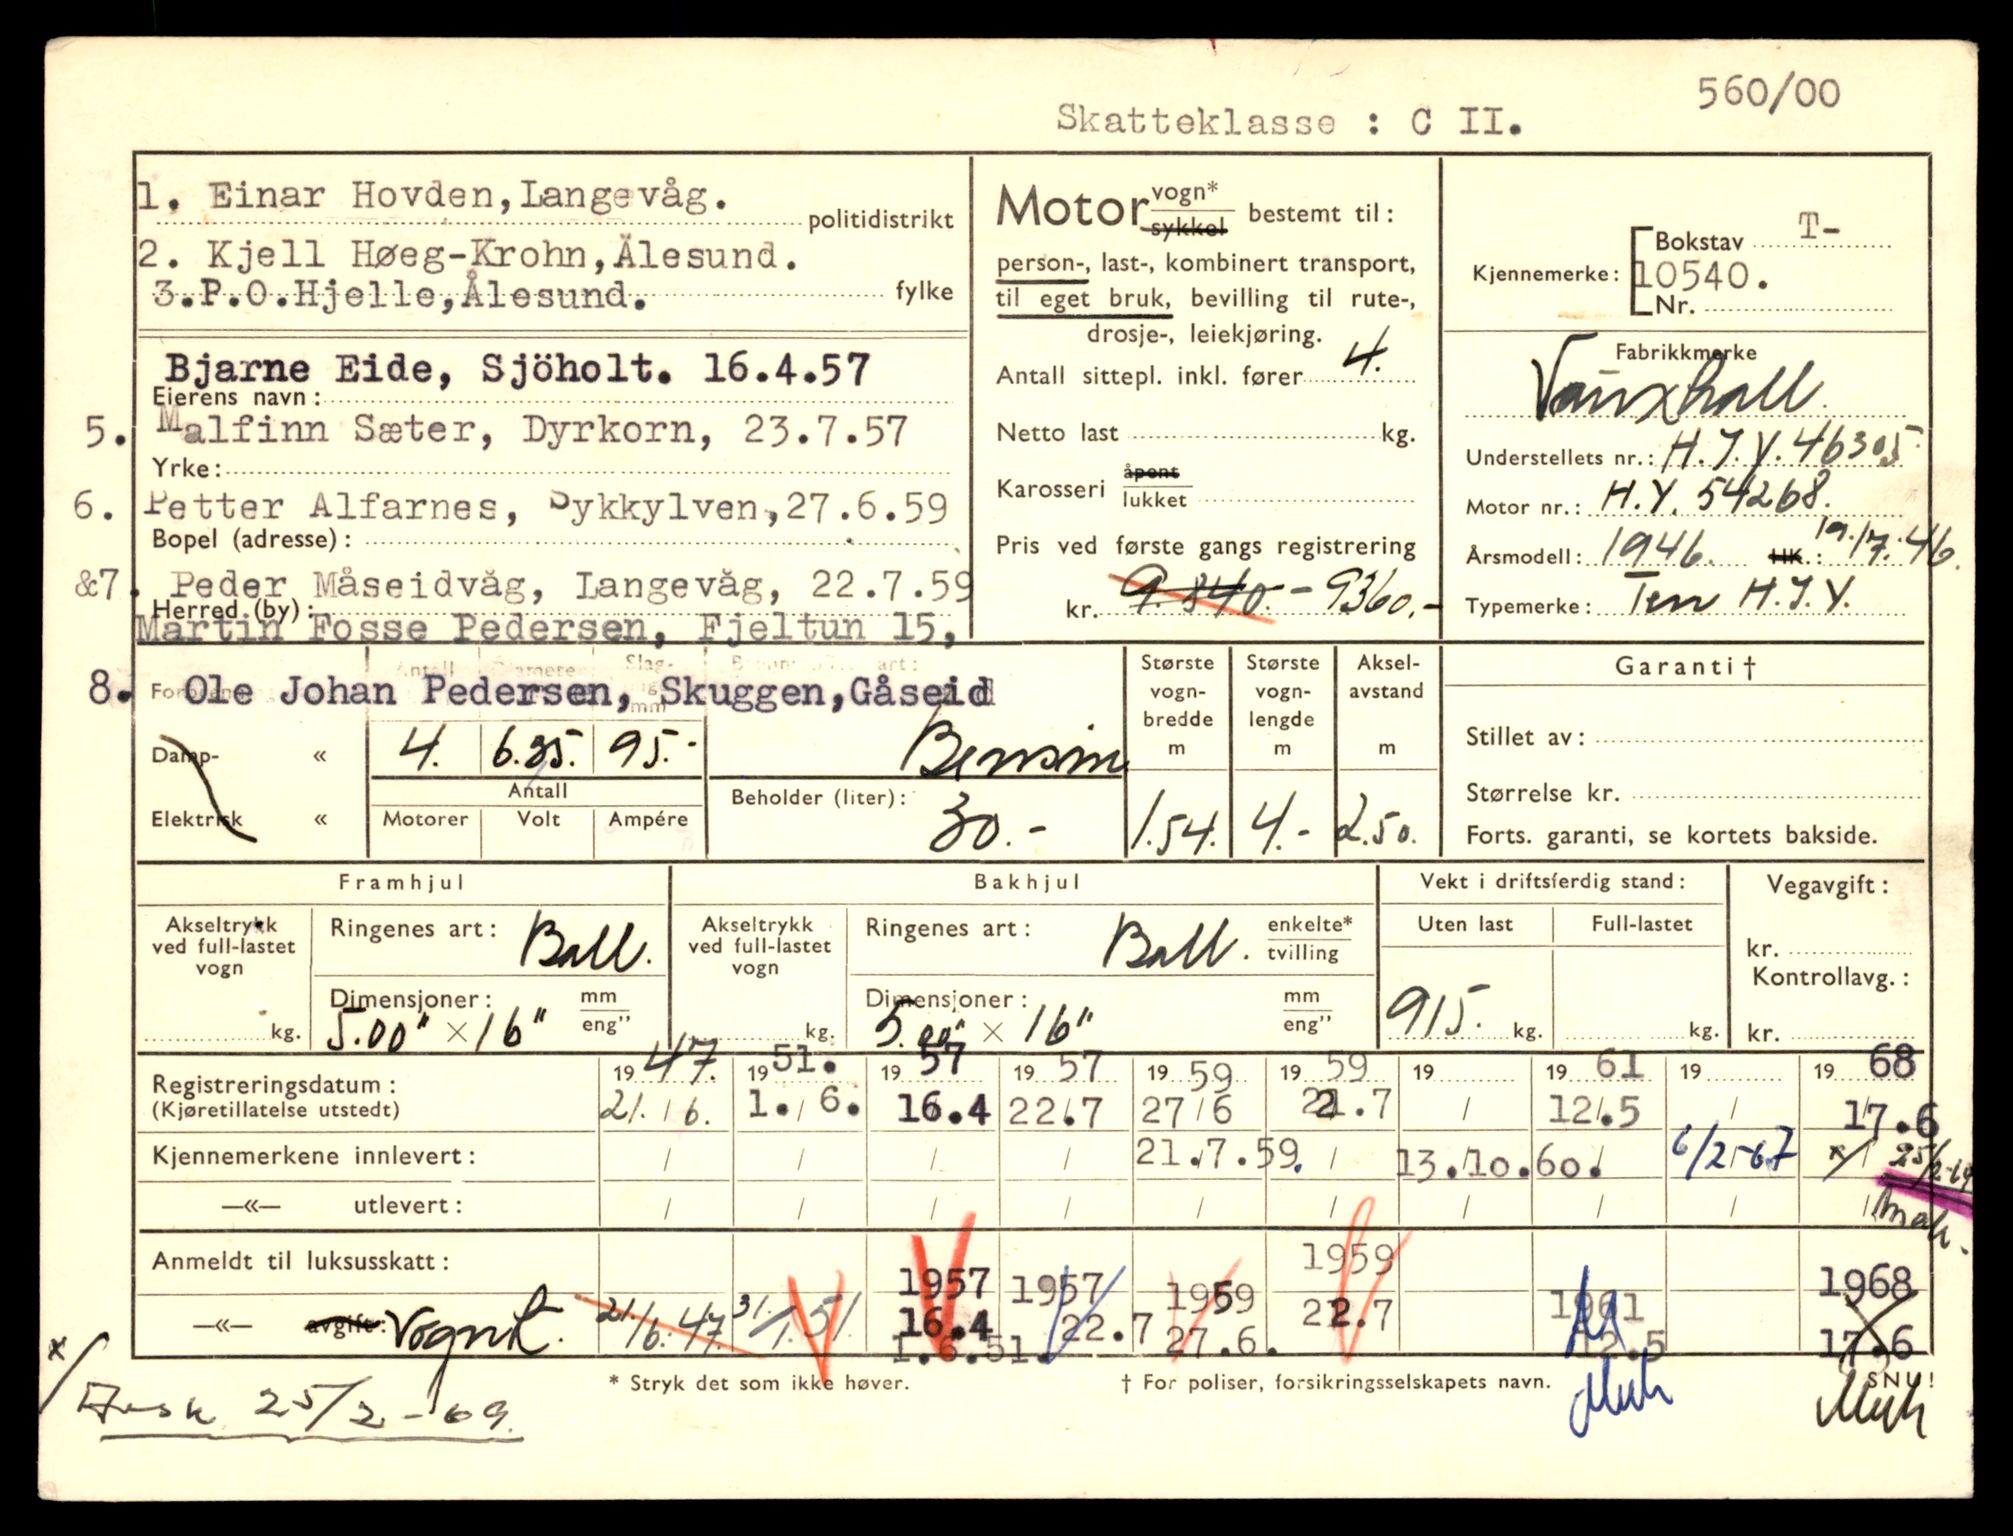 560/00
Skatteklasse : C II.
1. Einar Hovden, Langevåg.
politidistrikt
2. Kjell Høeg-Krohn, Ålesund.
3. P.O.Hjelle, Ålesund.
fylke
Bjarne Eide, Sjöholt. 16.4.57
Eierens navn :
5. Malfinn Sæter, Dyrkorn, 23.7.57
Yrke :
6. Petter Alfarnes, Sykkylven, 27.6.59
Bopel (adresse) :
&7. Peder Måseidvåg, Langevåg, 22.7.59
Herred (by) :
Martin Fosse Pedersen, Fjeltun 15,
8. Ole Johan Pedersen, Skuggen, Gåseid
Motor vogn* sykkel bestemt til :
person-, last-, kombinert transport,
til eget bruk, bevilling til rute-,
drosje-, leiekjøring.
Antall sittepl. inkl. fører 4.
Netto last kg.
Karosseri åpent lukket
Pris ved første gangs registrering
kr. 9.840.- 9360.-
Kjennemerke : Bokstav T-
10540.
Nr.
Fabrikkmerke
Vauxhall
Understellets nr. : H.J.Y. 46305
Motor nr. : H.Y. 54268.
Årsmodell : 1946. HK. : 19.17.46.
Typemerke : Ten H.J.Y.
Antall Slag- art :
mm
Damp- « 4. 6.35. 95.- Bensin
Antall
Elektrisk « Motorer Volt Ampére
Beholder (liter) : 30.-
Største vogn- bredde m 1.54.
Største vogn- lengde m 4.-
Aksel- avstand m 2.50.
Garanti †
Stillet av :
Størrelse kr.
Forts. garanti, se kortets bakside.
Framhjul
Akseltrykk ved full-lastet vogn kg.
Ringenes art : Ball.
Dimensjoner : mm eng”
5.00" × 16"
Bakhjul
Akseltrykk ved full-lastet vogn kg.
Ringenes art : Ball. enkelte* tvilling
Dimensjoner : mm eng”
5.00" × 16"
Vekt i driftsferdig stand :
Uten last Full-lastet
915. kg. kg.
Vegavgift :
kr.
Kontrollavg. :
kr.
Registreringsdatum : 19 47. 19 51. 19 57 19 57 19 59 19 59 19 19 61 19 19 68
(Kjøretillatelse utstedt) 21. / 6. 1. / 6. 16.4 22.7 27/6 21.7 / 12.5 / 17.6
Kjennemerkene innlevert : / / / / 21.7.59. / 13.10.60. 6/2-67 x/ 25/2-69
—«— utlevert : / / / / / / / / / /
Anmeldt til luksusskatt : 1957 1957 1959 1959 1961 1968
—«— avgift : Vognsk. 21/6.47. 31/1.51. 16.4 22.7 27.6. 22.7 12.5 17.6
1.6.51.
* Stryk det som ikke høver.
† For poliser, forsikringsselskapets navn.
SNU!
x/ 25/2-69.